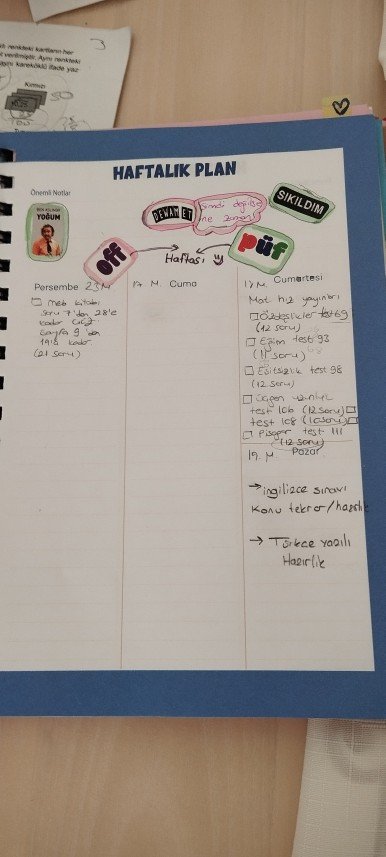 3
renkteki kartların her
verilmiştir. Aynı renkteki
kareköklü ifade yaz
Kırmızı
HAFTALIK PLAN
Önemli Notlar
YOĞUM
DEVAM ET
Şimdi değilse
ne zaman
SIKILDIM
off
püf
Haftası
Perşembe 23 M.
Meb kitabı
Soru 7'den 28'e
kadar
Sayfa 9'dan
kadar
(21 soru)
M. Cuma
M. Cumartesi
Mat hız yayınları
Özdeşlikler test 69
(12 soru)
Eğim test 93
(11 soru)
Eşitsizlik test 98
(12 soru)
test 106 (12 soru)
test 108 (10 soru)
test 111
(12 soru)
19 M. Pazar
→ ingilizce sınavı
Konu tekrar/hazırlık
→ Türkçe yazılı
Hazırlık